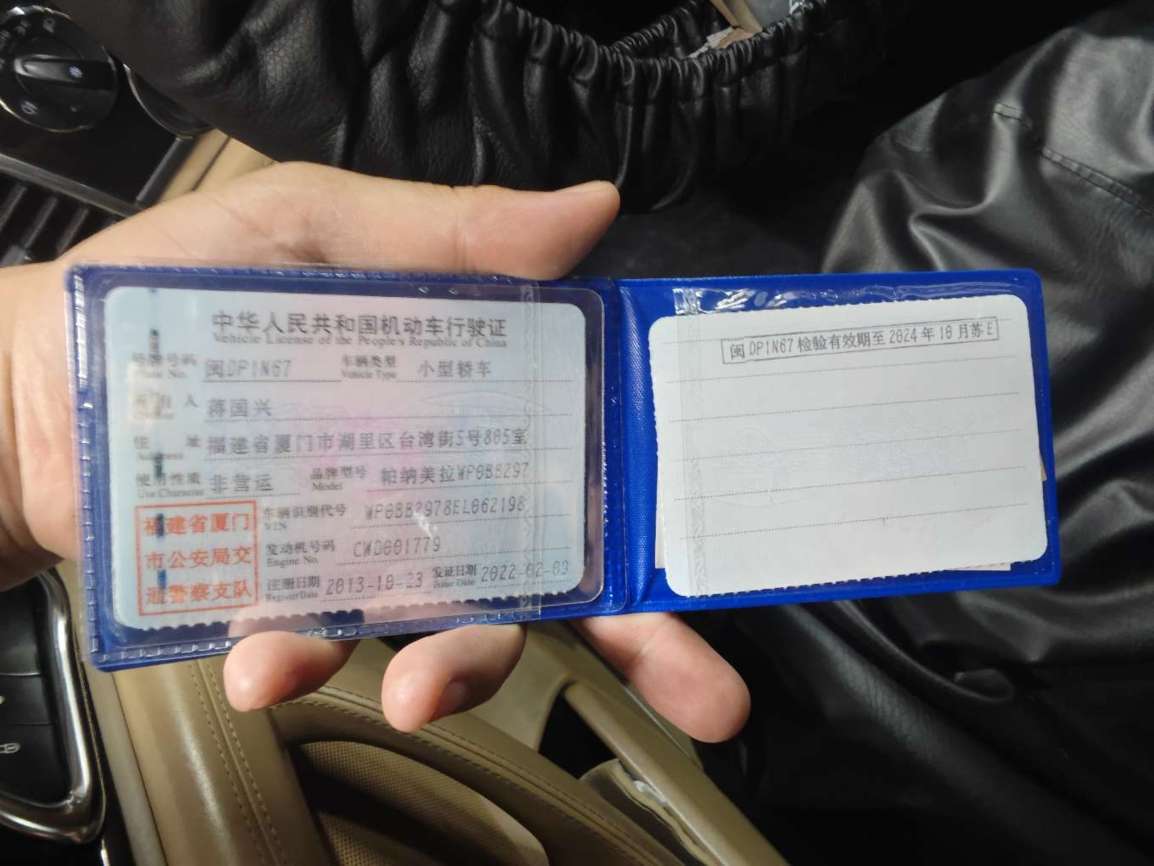 中华人民共和国机动车行驶证
Vehicle License of the People's Republic of China
号牌号码 闽DP1N67 车辆类型 小型轿车
Plate No. Vehicle Type
人 蒋国兴
住 址 福建省厦门市湖里区台湾街5号805室
使用性质 非营运 品牌型号 帕纳美拉WP0BB297
Use Character Model
车辆识别代号 WP0BB2978EL062198
VIN
发动机号码 CWD001779
Engine No.
注册日期 2013-10-23 发证日期 2022-02-03
Register Date Issue Date
福建省厦门
市公安局交
通警察支队
闽DP1N67检验有效期至2024年10月苏E